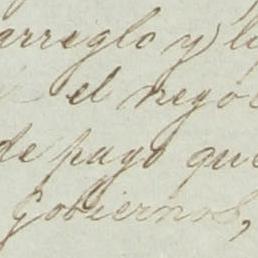 arreglo y l
el negoc
de pago que
Gobiernos,